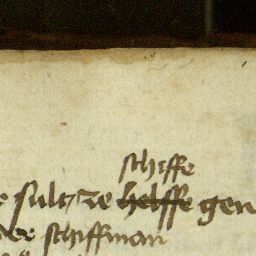 schiffe
sultz ze helffe gen
der schiffman